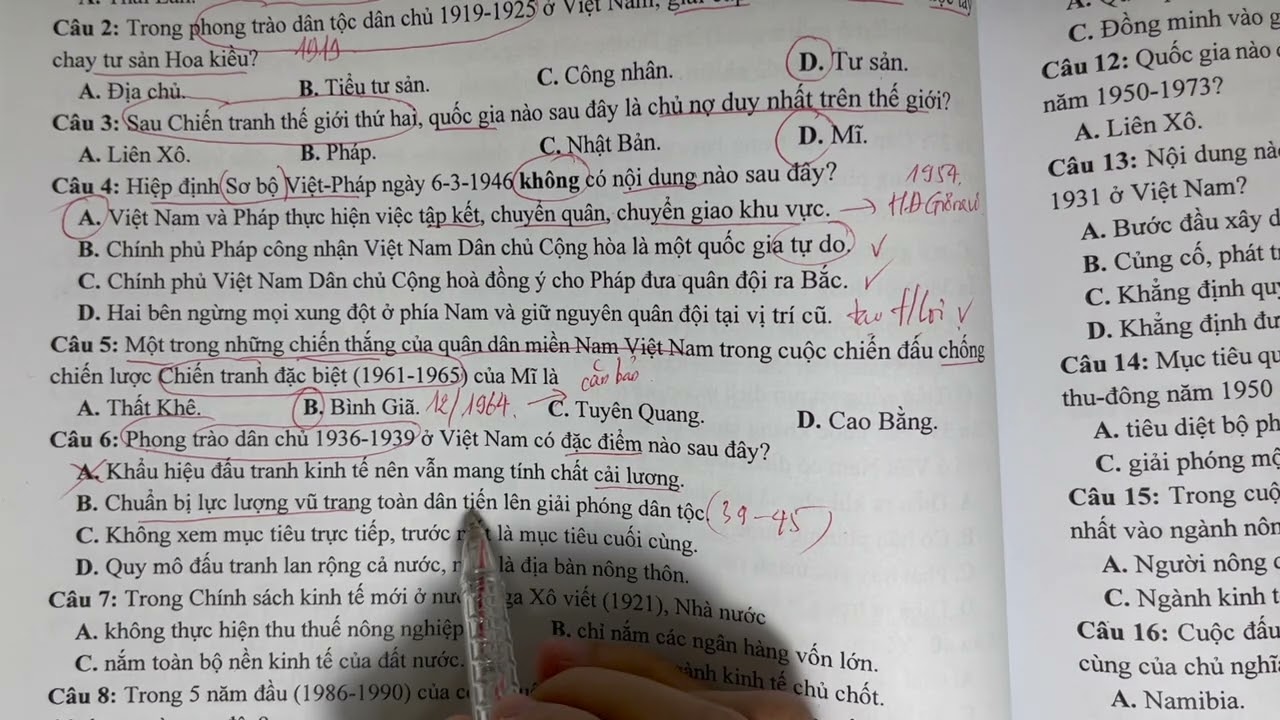 Câu 2: Trong phong trào dân tộc dân chủ 1919-1925 ở Việt Nam,
1919
chay tư sản Hoa kiều?
A. Địa chủ. B. Tiểu tư sản. C. Công nhân. D. Tư sản.
Câu 3: Sau Chiến tranh thế giới thứ hai, quốc gia nào sau đây là chủ nợ duy nhất trên thế giới?
A. Liên Xô. B. Pháp. C. Nhật Bản. D. Mĩ.
Câu 4: Hiệp định Sơ bộ Việt-Pháp ngày 6-3-1946 không có nội dung nào sau đây? 1954.
A. Việt Nam và Pháp thực hiện việc tập kết, chuyển quân, chuyển giao khu vực.
B. Chính phủ Pháp công nhận Việt Nam Dân chủ Cộng hòa là một quốc gia tự do.
C. Chính phủ Việt Nam Dân chủ Cộng hoà đồng ý cho Pháp đưa quân đội ra Bắc.
D. Hai bên ngừng mọi xung đột ở phía Nam và giữ nguyên quân đội tại vị trí cũ.
Câu 5: Một trong những chiến thắng của quân dân miền Nam Việt Nam trong cuộc chiến đấu chống
chiến lược Chiến tranh đặc biệt (1961-1965) của Mĩ là
A. Thất Khê. B. Bình Giã. 12/1964. C. Tuyên Quang. D. Cao Bằng.
Câu 6: Phong trào dân chủ 1936-1939 ở Việt Nam có đặc điểm nào sau đây?
A. Khẩu hiệu đấu tranh kinh tế nên vẫn mang tính chất cải lương.
B. Chuẩn bị lực lượng vũ trang toàn dân tiến lên giải phóng dân tộc. (39-45)
C. Không xem mục tiêu trực tiếp, trước là mục tiêu cuối cùng.
D. Quy mô đấu tranh lan rộng cả nước, là địa bàn nông thôn.
Câu 7: Trong Chính sách kinh tế mới ở Xô viết (1921), Nhà nước
A. không thực hiện thu thuế nông nghiệp B. chỉ nắm các ngân hàng vốn lớn.
C. nắm toàn bộ nền kinh tế của đất nước. kinh tế chủ chốt.
Câu 8: Trong 5 năm đầu (1986-1990) của
C. Đồng minh vào
Câu 12: Quốc gia nào
năm 1950-1973?
A. Liên Xô.
Câu 13: Nội dung
1931 ở Việt Nam?
A. Bước đầu xây
B. Củng cố, phát
C. Khẳng định
D. Khẳng định
Câu 14: Mục tiêu
thu-đông năm 1950
A. tiêu diệt bộ
C. giải phóng
Câu 15: Trong
nhất vào ngành
A. Người nông
C. Ngành kinh
Câu 16: Cuộc
cùng của chủ
A. Namibia.